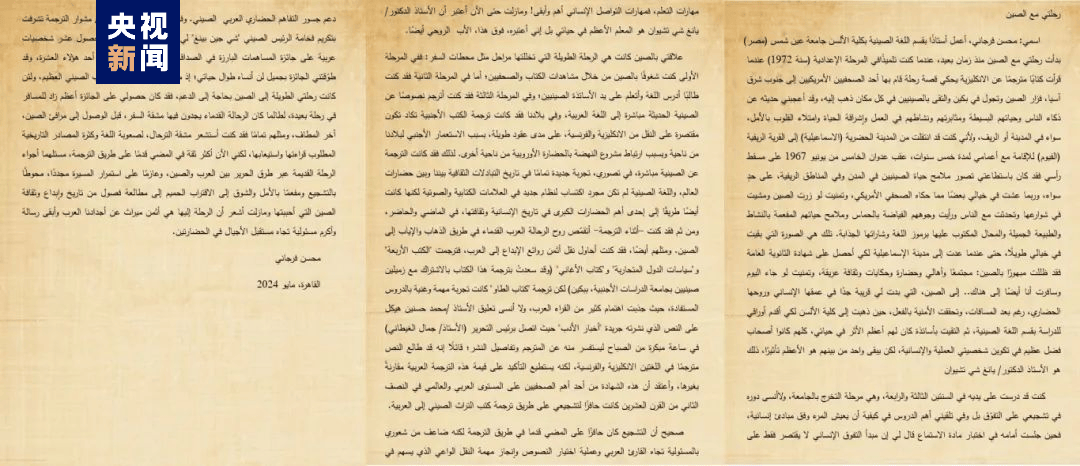 央视
新闻
رحلتي مع الصين
اسمي: محسن فرجاني، أعمل أستاذًا بقسم اللغة الصينية بكلية الألسن جامعة عين شمس (مصر)
بدأت رحلتي مع الصين منذ زمان بعيد، عندما كنت تلميذًا في المرحلة الإعدادية (سنة 1972) عندما
قرأت كتابًا مترجمًا عن الانكليزية يحكي قصة رحلة قام بها أحد الصحفيين الأمريكيين إلى جنوب شرق
آسيا، فزار الصين وتجول في بكين والتقى بالصينيين في كل مكان ذهب إليه، وقد أعجبني حديثه عن
ذكاء الناس وحياتهم البسيطة ومثابرتهم ونشاطهم في العمل وإشراقة الحياة وامتلاء القلوب بالأمل،
سواء في المدينة أو الريف، ولأني كنت قد انتقلت من المدينة الحضرية (الاسماعيلية) إلى القرية الريفية
(الفيوم) للإقامة مع أعمامي لمدة خمس سنوات، عقب عدوان الخامس من يونيو 1967 على مسقط
رأسي فقد كان باستطاعتي تصور ملامح حياة الصينيين في المدن وفي المناطق الريفية، على حدٍ
سواء، وربما عشت في خيالي بعضًا مما حكاه الصحفي الأمريكي، وتمنيت لو زرت الصين ومشيت
في شوارعها وتحدثت مع الناس ورأيت وجوههم الفياضة بالحماس وملامح حياتهم المفعمة بالنشاط
والطبيعة الجميلة والمحال المكتوب عليها برموز اللغة وشاراتها الجذابة. تلك هي الصورة التي بقيت
في خيالي طويلًا، حتى عندما عدت إلى مدينة الإسماعيلية لكي أحصل على شهادة الثانوية العامة
فقد ظللت مبهورًا بالصين: مجتمعًا وأهالي وحضارة وحكايات وثقافة عريقة، وتمنيت لو جاء اليوم
وسافرت أنا أيضًا إلى هناك.. إلى الصين، التي بدت لي قريبة جدًا في عمقها الإنساني وروحها
الحضاري، رغم بعد المسافات، وتحققت الأمنية بالفعل، حين ذهبت إلى كلية الألسن لكي أقدم أوراقي
للدراسة بقسم اللغة الصينية، ثم التقيت بأساتذة كان لهم أعظم الأثر في حياتي، كلهم كانوا أصحاب
فضل عظيم في تكوين شخصيتي العملية والإنسانية، لكن يبقى واحد من بينهم هو الأعظم تأثيرًا، ذلك
هو الأستاذ الدكتور/ يانغ شي تشيوان
كنت قد درست على يديه في السنتين الثالثة والرابعة، وهي مرحلة التخرج بالجامعة، ولاأنسى دوره
في تشجيعي على التفوق بل وفي تلقيني أهم الدروس في كيفية أن يعيش المره وفق مبادئ إنسانية،
فحين جلست أمامه في اختبار مادة الاستماع قال لي إن مبدأ التفوق الإنساني لا يقتصر فقط على
مهارات التعلم، فمهارات التواصل الإنساني أهم وأبقى! ومازلت حتى الآن أعتبر أن الأستاذ الدكتور/
يانغ شي تشيوان هو المعلم الأعظم في حياتي بل إني أعتبره، فوق هذا، الأب الروحي أيضًا.
علاقتي بالصين كانت هي الرحلة الطويلة التي تخللتها مراحل مثل محطات السفر: ففي المرحلة
الأولى كنت شغوفًا بالصين من خلال مشاهدات الكتاب والصحفيين؛ أما في المرحلة الثانية فقد كنت
طالبًا أدرس اللغة وأتعلم على يد الأساتذة الصينيين؛ وفي المرحلة الثالثة فقد كنت أترجم نصوصًا عن
الصينية الحديثة مباشرة إلى اللغة العربية، وفي بلادنا فقد كانت ترجمة الكتب الأجنبية تكاد تكون
مقتصرة على النقل من الانكليزية والفرنسية، على مدى عقود طويلة، بسبب الاستعمار الأجنبي لبلادنا
من ناحية وبسبب ارتباط مشروع النهضة بالحضارة الأوروبية من ناحية أخرى. لذلك فقد كانت الترجمة
عن الصينية مباشرة، في تصوري، تجربة جديدة تمامًا في تاريخ التبادلات الثقافية بيننا وبين حضارات
العالم، واللغة الصينية لم تكن مجرد اكتساب لنظام جديد في العلامات الكتابية والصوتية لكنها كانت
أيضًا طريقًا إلى إحدى أهم الحضارات الكبرى في تاريخ الإنسانية وثقافتها، في الماضي والحاضر،
ومن ثم فقد كنت –أثناء الترجمة– أتقمّص روح الرحالة العرب القدماء في طريق الذهاب والإياب إلى
الصين. ومثلهم أيضًا، فقد كنت أحاول نقل أثمن روائع الإبداع إلى العرب، فترجمت "الكتب الأربعة"
و"سياسات الدول المتحاربة" و"كتاب الأغاني" (وقد سعدت بترجمة هذا الكتاب بالاشتراك مع زميلين
صينيين بجامعة الدراسات الأجنبية، ببكين) لكن ترجمة "كتاب الطاو" كانت تجربة مهمة وغنية بالدروس
المستفادة، حيث جذبت اهتمام كثير من القراء العرب، ولا أنسى تعليق الأستاذ /محمد حسنين هيكل
على النص الذي نشرته جريدة "أخبار الأدب" حيث اتصل برئيس التحرير (الأستاذ/ جمال الغيطاني)
في ساعة مبكرة من الصباح ليستفسر منه عن المترجم وتفاصيل النشر؛ قائلًا إنه قد طالع النص
مترجمًا في اللغتين الانكليزية والفرنسية، لكنه يستطيع التأكيد على قيمة هذه الترجمة العربية مقارنة
بغيرها، وأعتقد أن هذه الشهادة من أحد أهم الصحفيين على المستوى العربي والعالمي في النصف
الثاني من القرن العشرين كانت حافزًا لتشجيعي على طريق ترجمة كتب التراث الصيني إلى العربية.
صحيح أن التشجيع كان حافزًا على المضي قدما في طريق الترجمة لكنه ضاعف من شعوري
بالمسئولية تجاه القارئ العربي وعملية اختيار النصوص وانجاز مهمة النقل الواعي الذي يسهم في
دعم جسور التفاهم الحضاري العربي الصيني. مشوار الترجمة تشرفت
بتكريم فخامة الرئيس الصيني "شي جين بينغ" حصول عشر شخصيات
عربية على جائزة المساهمات البارزة في الصداقة أحد هؤلاء العشرة، وقد
طوّقتني الجائزة بجميل لن أنساه طوال حياتي؛ إذ الصيني العظيم، ولئن
كانت رحلتي الطويلة إلى الصين بحاجة إلى الدعم، فقد كان حصولي على الجائزة أعظم زاد للمسافر
في رحلة بعيدة، لطالما كان الرحالة القدماء يجدون فيها مشقة السفر، قبل الوصول إلى مرافئ الصين،
آخر المطاف، ومثلهم تمامًا فقد كنت أستشعر مشقة الترحال، لصعوبة اللغة وكثرة المصادر التاريخية
المطلوب قراءتها واستيعابها، لكني الآن أكثر ثقة في المضي قدمًا على طريق الترجمة، مستلهما أجواء
الرحلة القديمة عبر طريق الحرير بين العرب والصين، وعازمًا على استمرار المسيرة مجددًا، محوطًا
بالتشجيع ومفعمًا بالأمل والشوق إلى الاقتراب الحميم إلى مطالعة فصول من تاريخ وإبداع وثقافة
الصين التي أحببتها ومازلت أشعر أن الرحلة إليها هي أثمن ميراث عن أجدادنا العرب وأبقى رسالة
وأكرم مسئولية تجاه مستقبل الأجيال في الحضارتين.
محسن فرجاني
القاهرة، مايو 2024